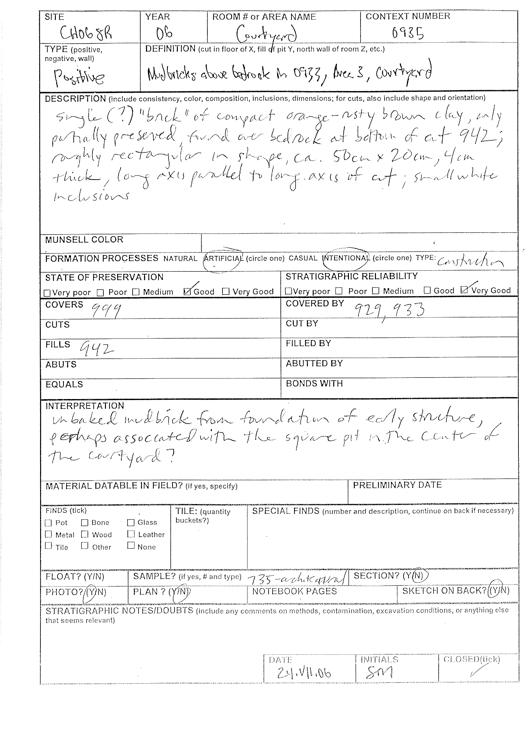 SITE YEAR ROOM # or AREA NAME CONTEXT NUMBER
CH06SR 06 Courtyard 0935
TYPE (positive, negative, wall) DEFINITION (cut in floor of X, fill of pit Y, north wall of room Z, etc.)
Positive Mudbricks above bedrock in 0933, Area 3, Courtyard
DESCRIPTION (include consistency, color, composition, inclusions, dimensions; for cuts, also include shape and orientation)
single (?) "brick" of compact orange-rusty brown clay, only
partially preserved, found over bedrock at bottom of cut 942;
roughly rectangular in shape, ca. 50cm x 20cm, 4cm
thick, long axis parallel to long axis of cut; small white
inclusions
MUNSELL COLOR
FORMATION PROCESSES NATURAL ARTIFICIAL (circle one) CASUAL INTENTIONAL (circle one) TYPE: Construction
STATE OF PRESERVATION STRATIGRAPHIC RELIABILITY
Very poor Poor Medium Good Very Good Very poor Poor Medium Good Very Good
COVERS 999 COVERED BY 929, 933
CUTS CUT BY
FILLS 942 FILLED BY
ABUTS ABUTTED BY
EQUALS BONDS WITH
INTERPRETATION
unbaked mudbrick from foundation of early structure,
perhaps associated with the square pit in the center of
the courtyard?
MATERIAL DATABLE IN FIELD? (if yes, specify) PRELIMINARY DATE
FINDS (tick) TILE: (quantity buckets?) SPECIAL FINDS (number and description, continue on back if necessary)
Pot Bone Glass
Metal Wood Leather
Tile Other None
FLOAT? (Y/N) SAMPLE? (if yes, # and type) 735- SECTION? (Y/N)
PHOTO? (Y/N) PLAN ? (Y/N) NOTEBOOK PAGES SKETCH ON BACK? (Y/N)
STRATIGRAPHIC NOTES/DOUBTS (include any comments on methods, contamination, excavation conditions, or anything else
that seems relevant)
DATE INITIALS CLOSED(tick)
24.VII.06 SM